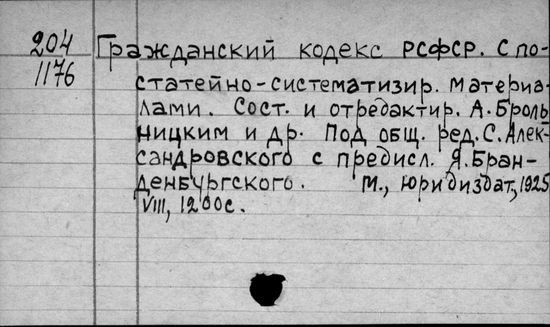 204 Гражданский кодекс РСФСР. С по-
1176 статейно-систематизир. материа-
лами. Сост. и отредактир. А. Броль
ницким и др. Под общ. ред. С. Алек-
сандровского с предисл. Я. Бран-
денбургского. М., юридиздат, 1925
VIII, 1200с.